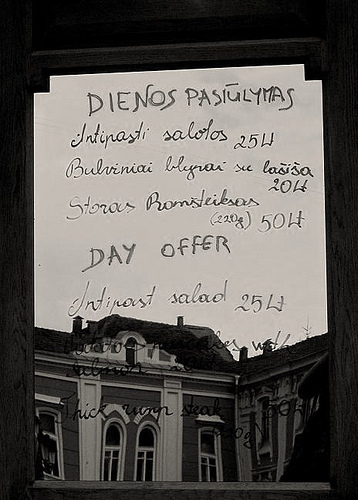 DIENOS PASIŪLYMAS
Antipasti salotos 25Lt
Bulviniai blynai su lašiša
20Lt
Storas Romsteiksas
(220g) 50Lt
DAY OFFER
Antipast salad 25Lt
salmon
Thick rump steak 50Lt
(220g)